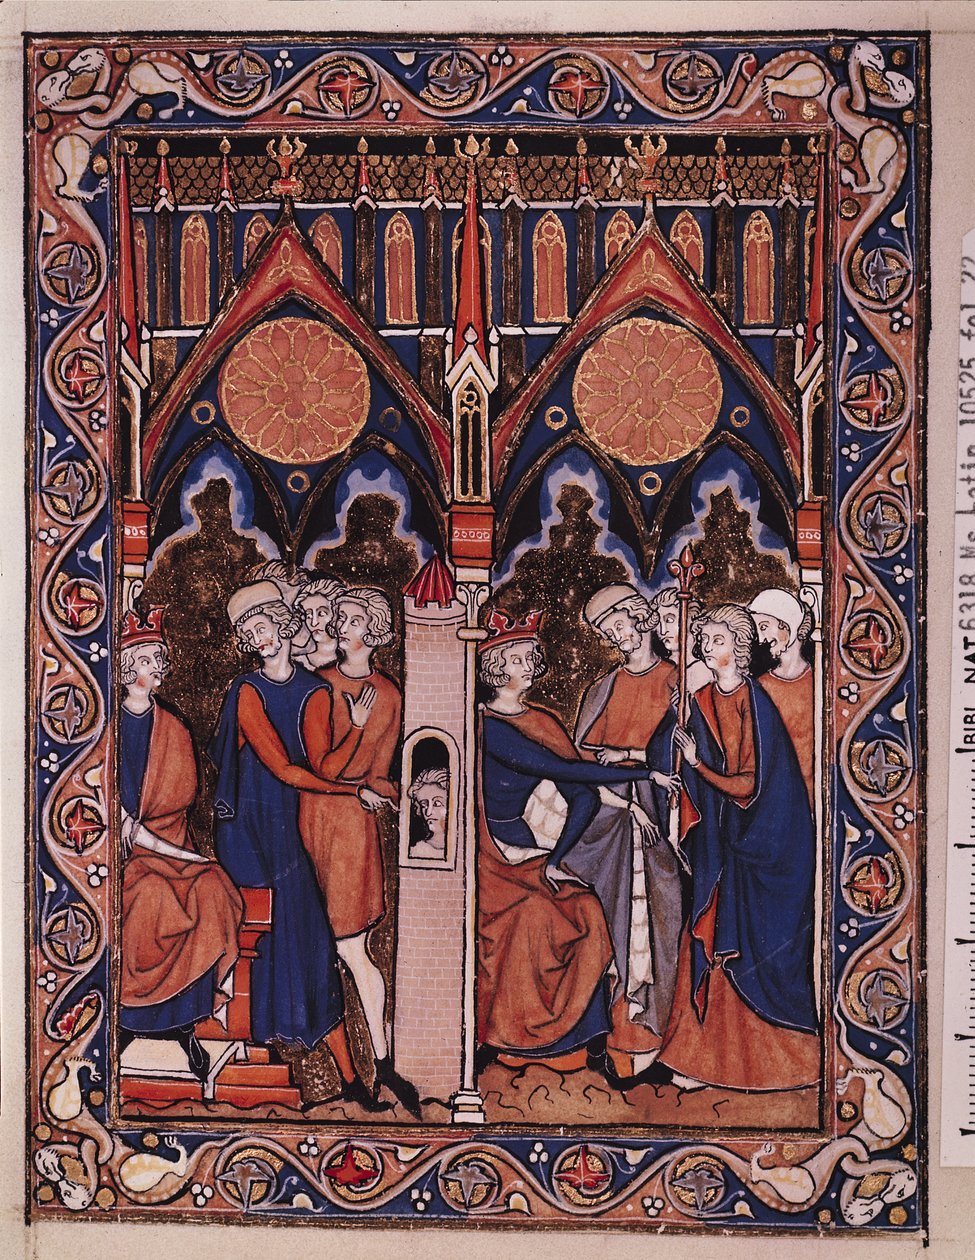 BIBL. NAT 6218 Ms Latin 10525 fol 22